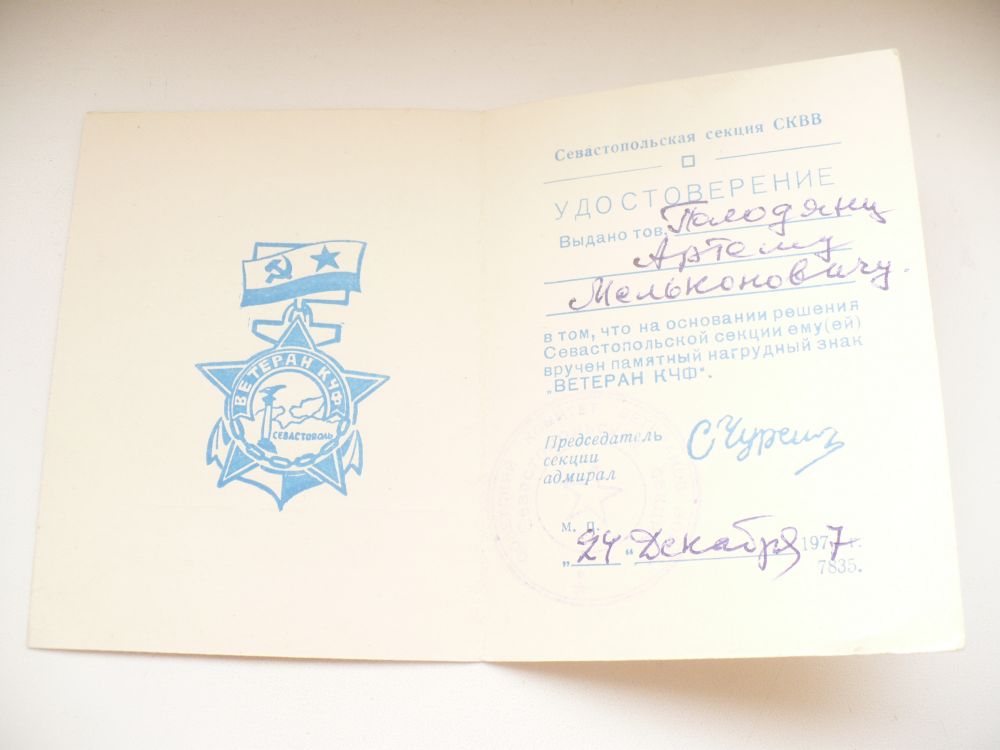 ВЕТЕРАН КЧФ
СЕВАСТОПОЛЬ
Севастопольская секция СКВВ
УДОСТОВЕРЕНИЕ
Выдано тов. Палодянц
Артему
Мельконовичу.
в том, что на основании решения
Севастопольской секции ему(ей)
вручен памятный нагрудный знак
„ВЕТЕРАН КЧФ“.
Председатель
секции
адмирал
м. п.
„24“ Декабря 1977 г.
7835.